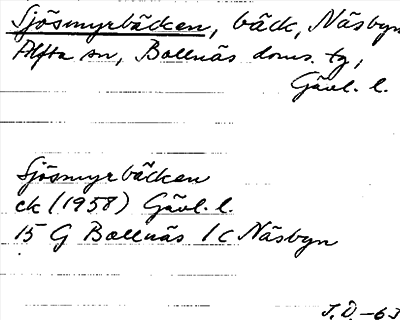 Sjösmyrbäcken, bäck, Näsbyn
Alfta sn, Bollnäs doms. tg,
Gävl. l.
Sjösmyrbäcken
ek (1958) Gävl. l.
15 G Bollnäs 1 c Näsbyn
J. D. -63